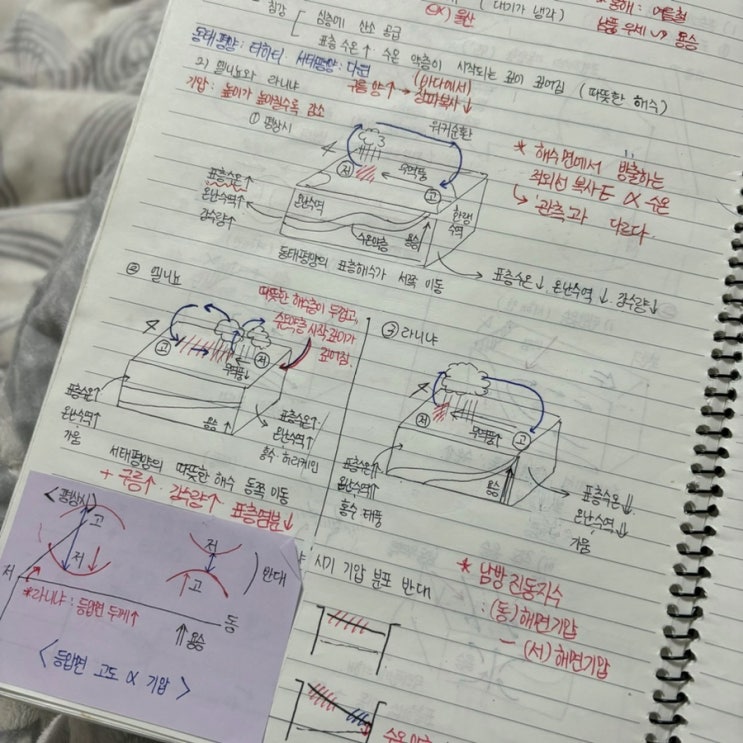 침강
심층에 산소 공급
(대기가 냉각)
울산
동해: 여름철
남풍 우세 → 용승
표층 수온↑ 수온 약층이 시작되는 깊이 깊어짐 (따뜻한 해수)
동태평양: 타히티, 서태평양: 다윈
2) 엘니뇨와 라니냐
구름 양↑ → (바다에서) 장파복사↓
기압: 높이가 높아질수록 감소
① 평상시
워커순환
저
무역풍
고
표층수온↑
온난수역↑
강수량↑
온난수역
수온약층
용승
한랭
수역
* 해수면에서 방출하는
적외선 복사E ∝ 수온
↳ '관측'과 다르다.
동태평양의 표층해수가 서쪽 이동
표층수온↓, 온난수역↓, 강수량↓
② 엘니뇨
따뜻한 해수층이 두껍고,
수온약층 시작 깊이가
깊어짐.
고
저
무역풍↓
표층수온↑
온난수역↑
가뭄
용승↓
표층수온↑
온난수역↑
홍수 허리케인
서태평양의 따뜻한 해수 동쪽 이동
+ 구름↑ 강수량↑ 표층염분↓
③ 라니냐
저
무역풍↑
고
표층수온↑
온난수역↑
홍수 태풍
용승
표층수온↓↓
온난수역↓
가뭄
<평상시>
고
저
저
고
반대
서
*라니냐: 등압면 두께↑
동
⇑용승
<등압면 고도 ∝ 기압>
시기 기압 분포 반대
* 남방 진동지수
: (동) 해면기압
― (서) 해면기압